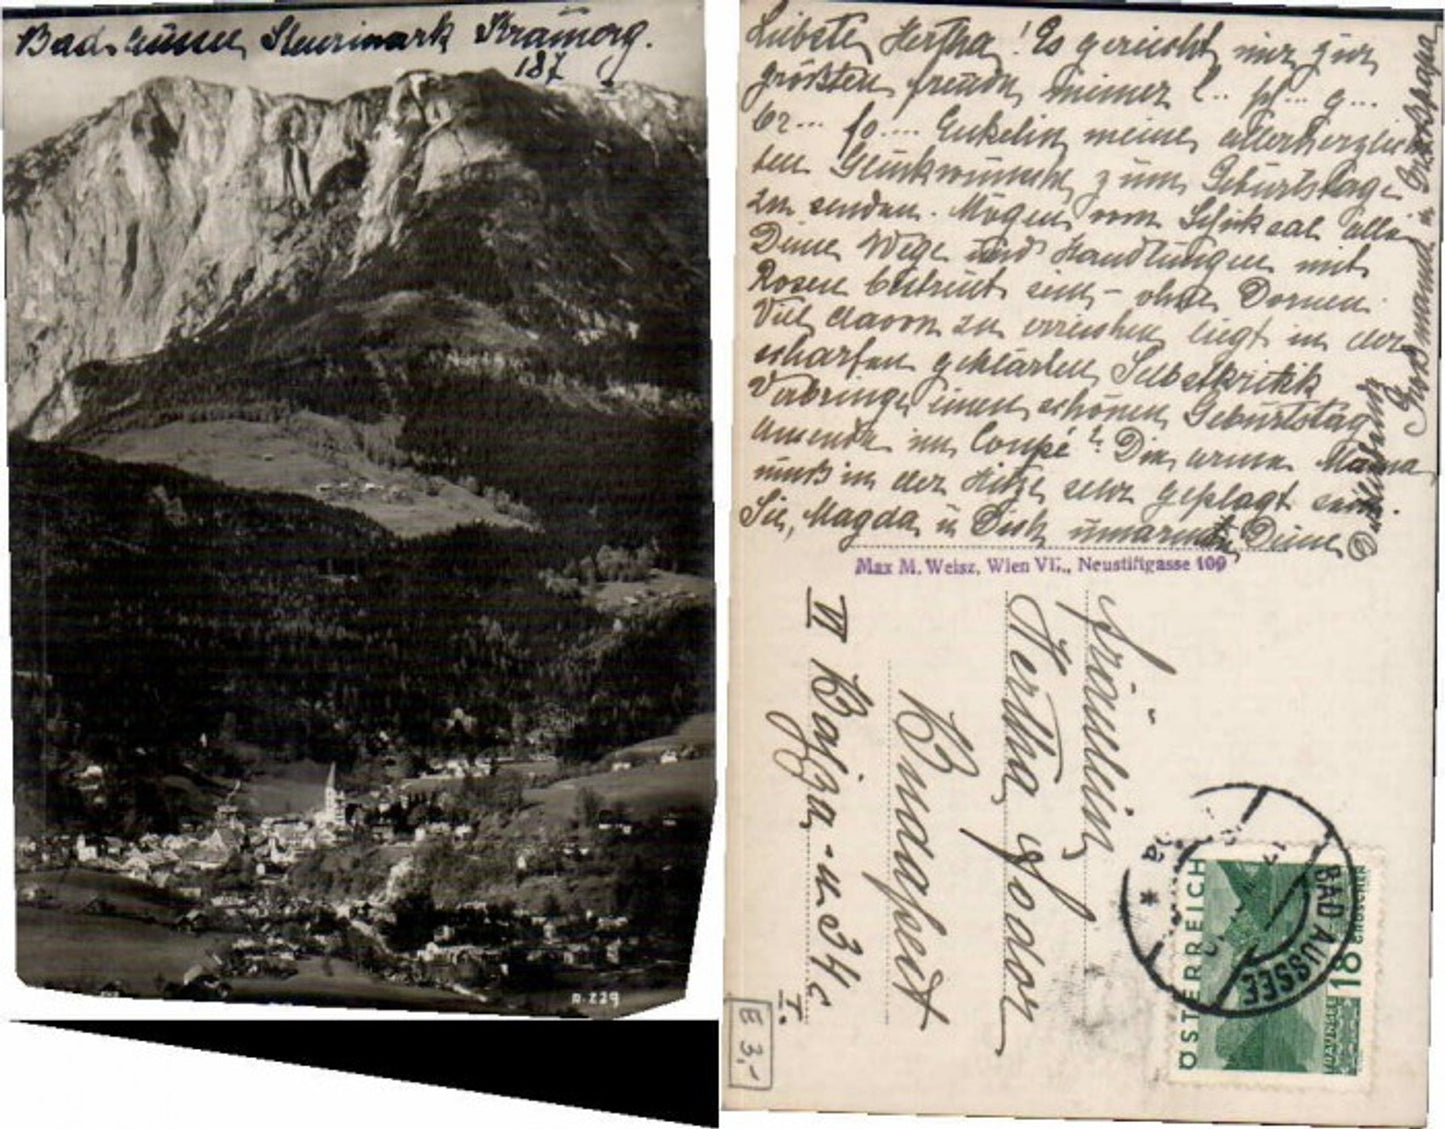 Bad Aussee, Steiermark Krámerg.
187
D. 229
Liebste Hertha! Es gereicht mir zur
größten Freude meiner l.. pl... g...
br... fo.... Enkelin meine allerherzlich
sten Glückwünsche zum Geburtstage
zu senden. Mögen vom Schiksal alle
Deine Wege und Handlungen mit
Rosen bestreut sein - ohne Dornen.
Viel davon zu erreichen liegt in der
scharfen geklärten Selbstkritik
Verbringe einen schönen Geburtstag
im Coupé? Die arme Mama
muß in der Hitze sehr geplagt sein.
Sie, Magda u Dich umarmt, Deine
Dich liebende
Großmama u Grosspapa
Max M. Weisz, Wien VII., Neustiftgasse 109
Fräulein
Hertha Fodor
Budapest
VI Bajza-u 34c
I.
E 3,-
BAD AUSSEE
ÖSTERREICH
18 GROSCHEN